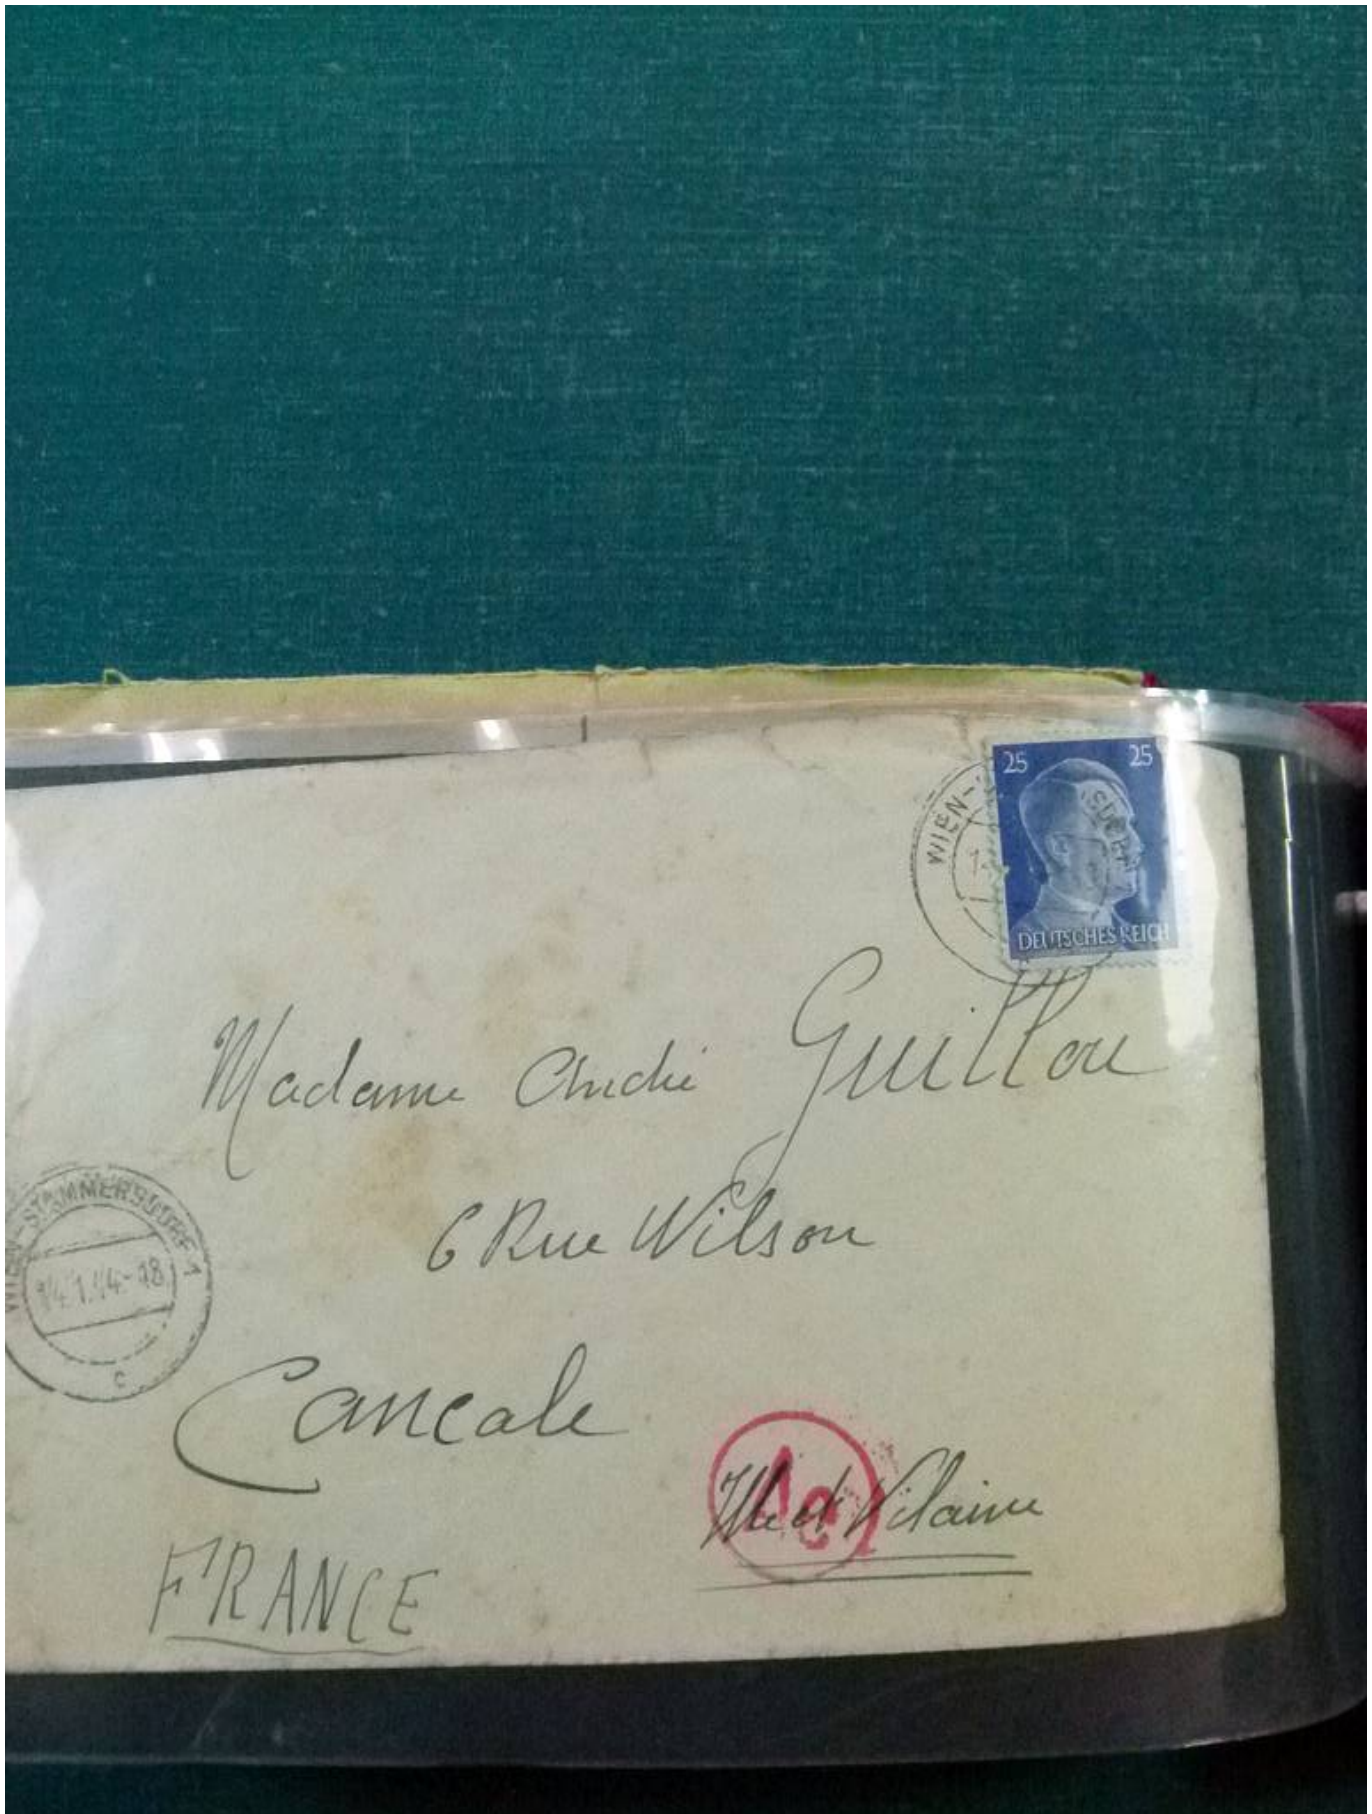 25 25
WIEN-
DEUTSCHES REICH
Madame André Guillou
6 Rue Wilson
WIEN-STAMMERSDORF 1
14.1.44-18
c
Cancale
Ille et Vilaine
Ae
FRANCE